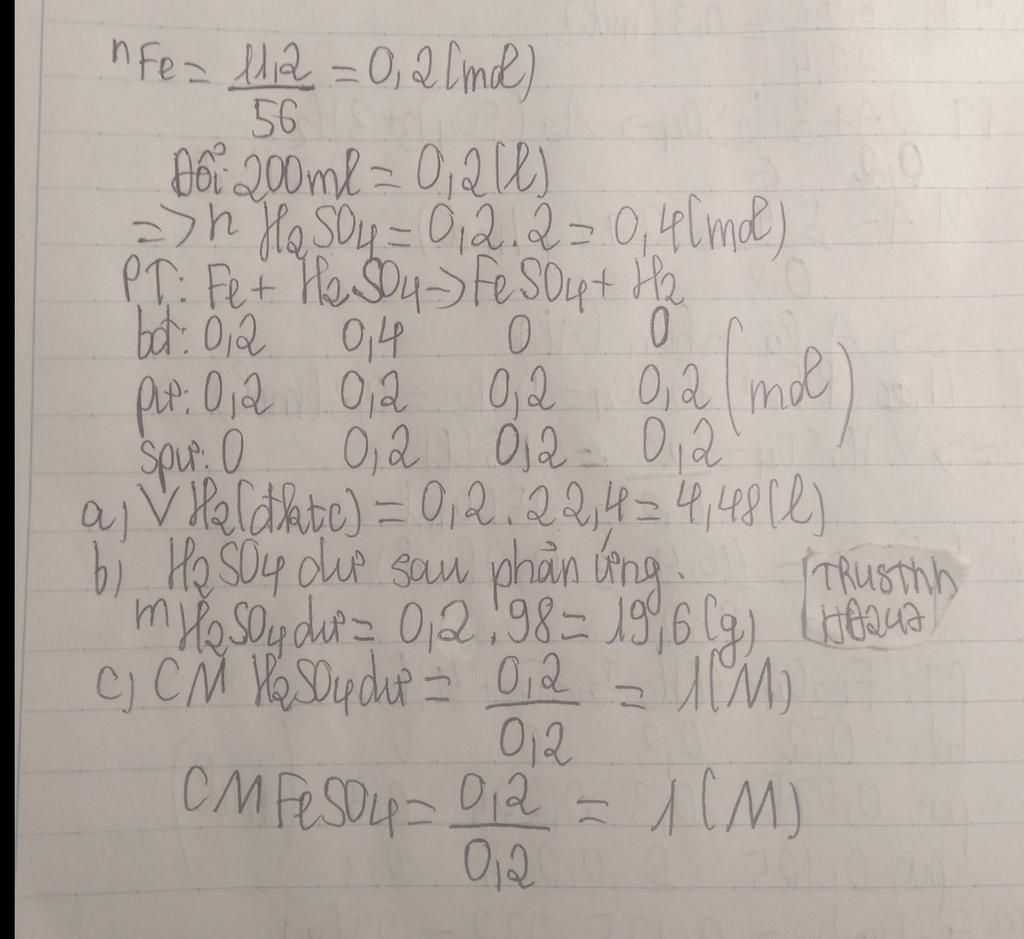 nFe = 11,2/56 = 0,2 (mol)
Đổi: 200ml = 0,2 (l)
=> n H2SO4 = 0,2 . 2 = 0,4 (mol)
PT: Fe + H2SO4 -> FeSO4 + H2
bđ: 0,2 0,4 0 0
pư: 0,2 0,2 0,2 0,2 (mol)
spư: 0 0,2 0,2 0,2
a) V H2 (đktc) = 0,2 . 22,4 = 4,48 (l)
b) H2SO4 dư sau phản ứng.
m H2SO4 dư = 0,2 . 98 = 19,6 (g)
c) CM H2SO4 dư = 0,2/0,2 = 1 (M)
CM FeSO4 = 0,2/0,2 = 1 (M)